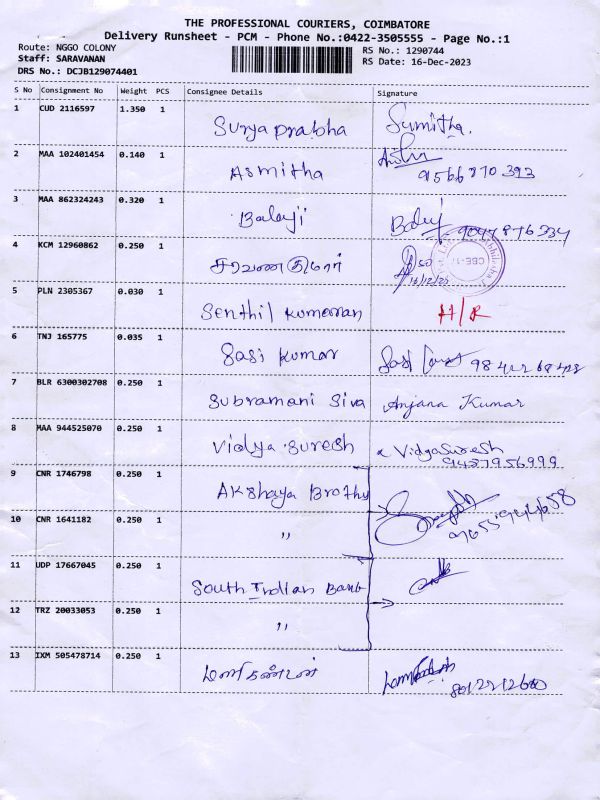 THE PROFESSIONAL COURIERS, COIMBATORE
Delivery Runsheet - PCM - Phone No.:0422-3505555 - Page No.:1
Route: NGGO COLONY RS No.: 1290744
Staff: SARAVANAN RS Date: 16-Dec-2023
DRS No.: DCJB129074401
S No Consignment No Weight PCS Consignee Details Signature
1 CUD 2116597 1.350 1 Surya prabha Sumitha.
2 MAA 102401454 0.140 1 Asmitha
9566870393
3 MAA 862324243 0.320 1 Balaji Balaji
4 KCM 12960862 0.250 1 சரவணகுமார்
16/12/23
CBE-
5 PLN 2305367 0.030 1 Senthil Kumaran H/R
6 TNJ 165775 0.035 1 Sasi Kumar
7 BLR 6300302708 0.250 1 Subramani Siva Anjana Kumar
8 MAA 944525070 0.250 1 Vidya Suresh VidyaSuresh
9437956999
9 CNR 1746798 0.250 1 Akshaya Brothy
10 CNR 1641182 0.250 1 "
9655944658
11 UDP 17667045 0.250 1 South Indian Bank
12 TRZ 20033053 0.250 1 "
13 IXM 505478714 0.250 1 மணிகண்டன்